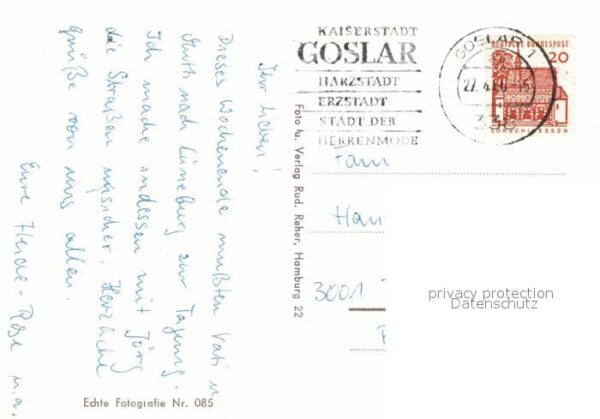 Ihr Lieben!
Dieses Wochenende mußten Vati u.
Muth nach Lüneburg zur Tagung.
Ich mache indessen mit Jörg
die Straßen unsicher. Herzliche
Grüße von uns allen.
Eure Heide-Rose u.a.
Echte Fotografie Nr. 085
Foto u. Verlag Rud. Reher, Hamburg 22
KAISERSTADT
GOSLAR
HARZSTADT
ERZSTADT
STADT DER
HERRENMODE
GOSLAR 1
338
DEUTSCHE BUNDESPOST
20
LORSCH/HESSEN
Fam
Han
3001
privacy protection
Datenschutz